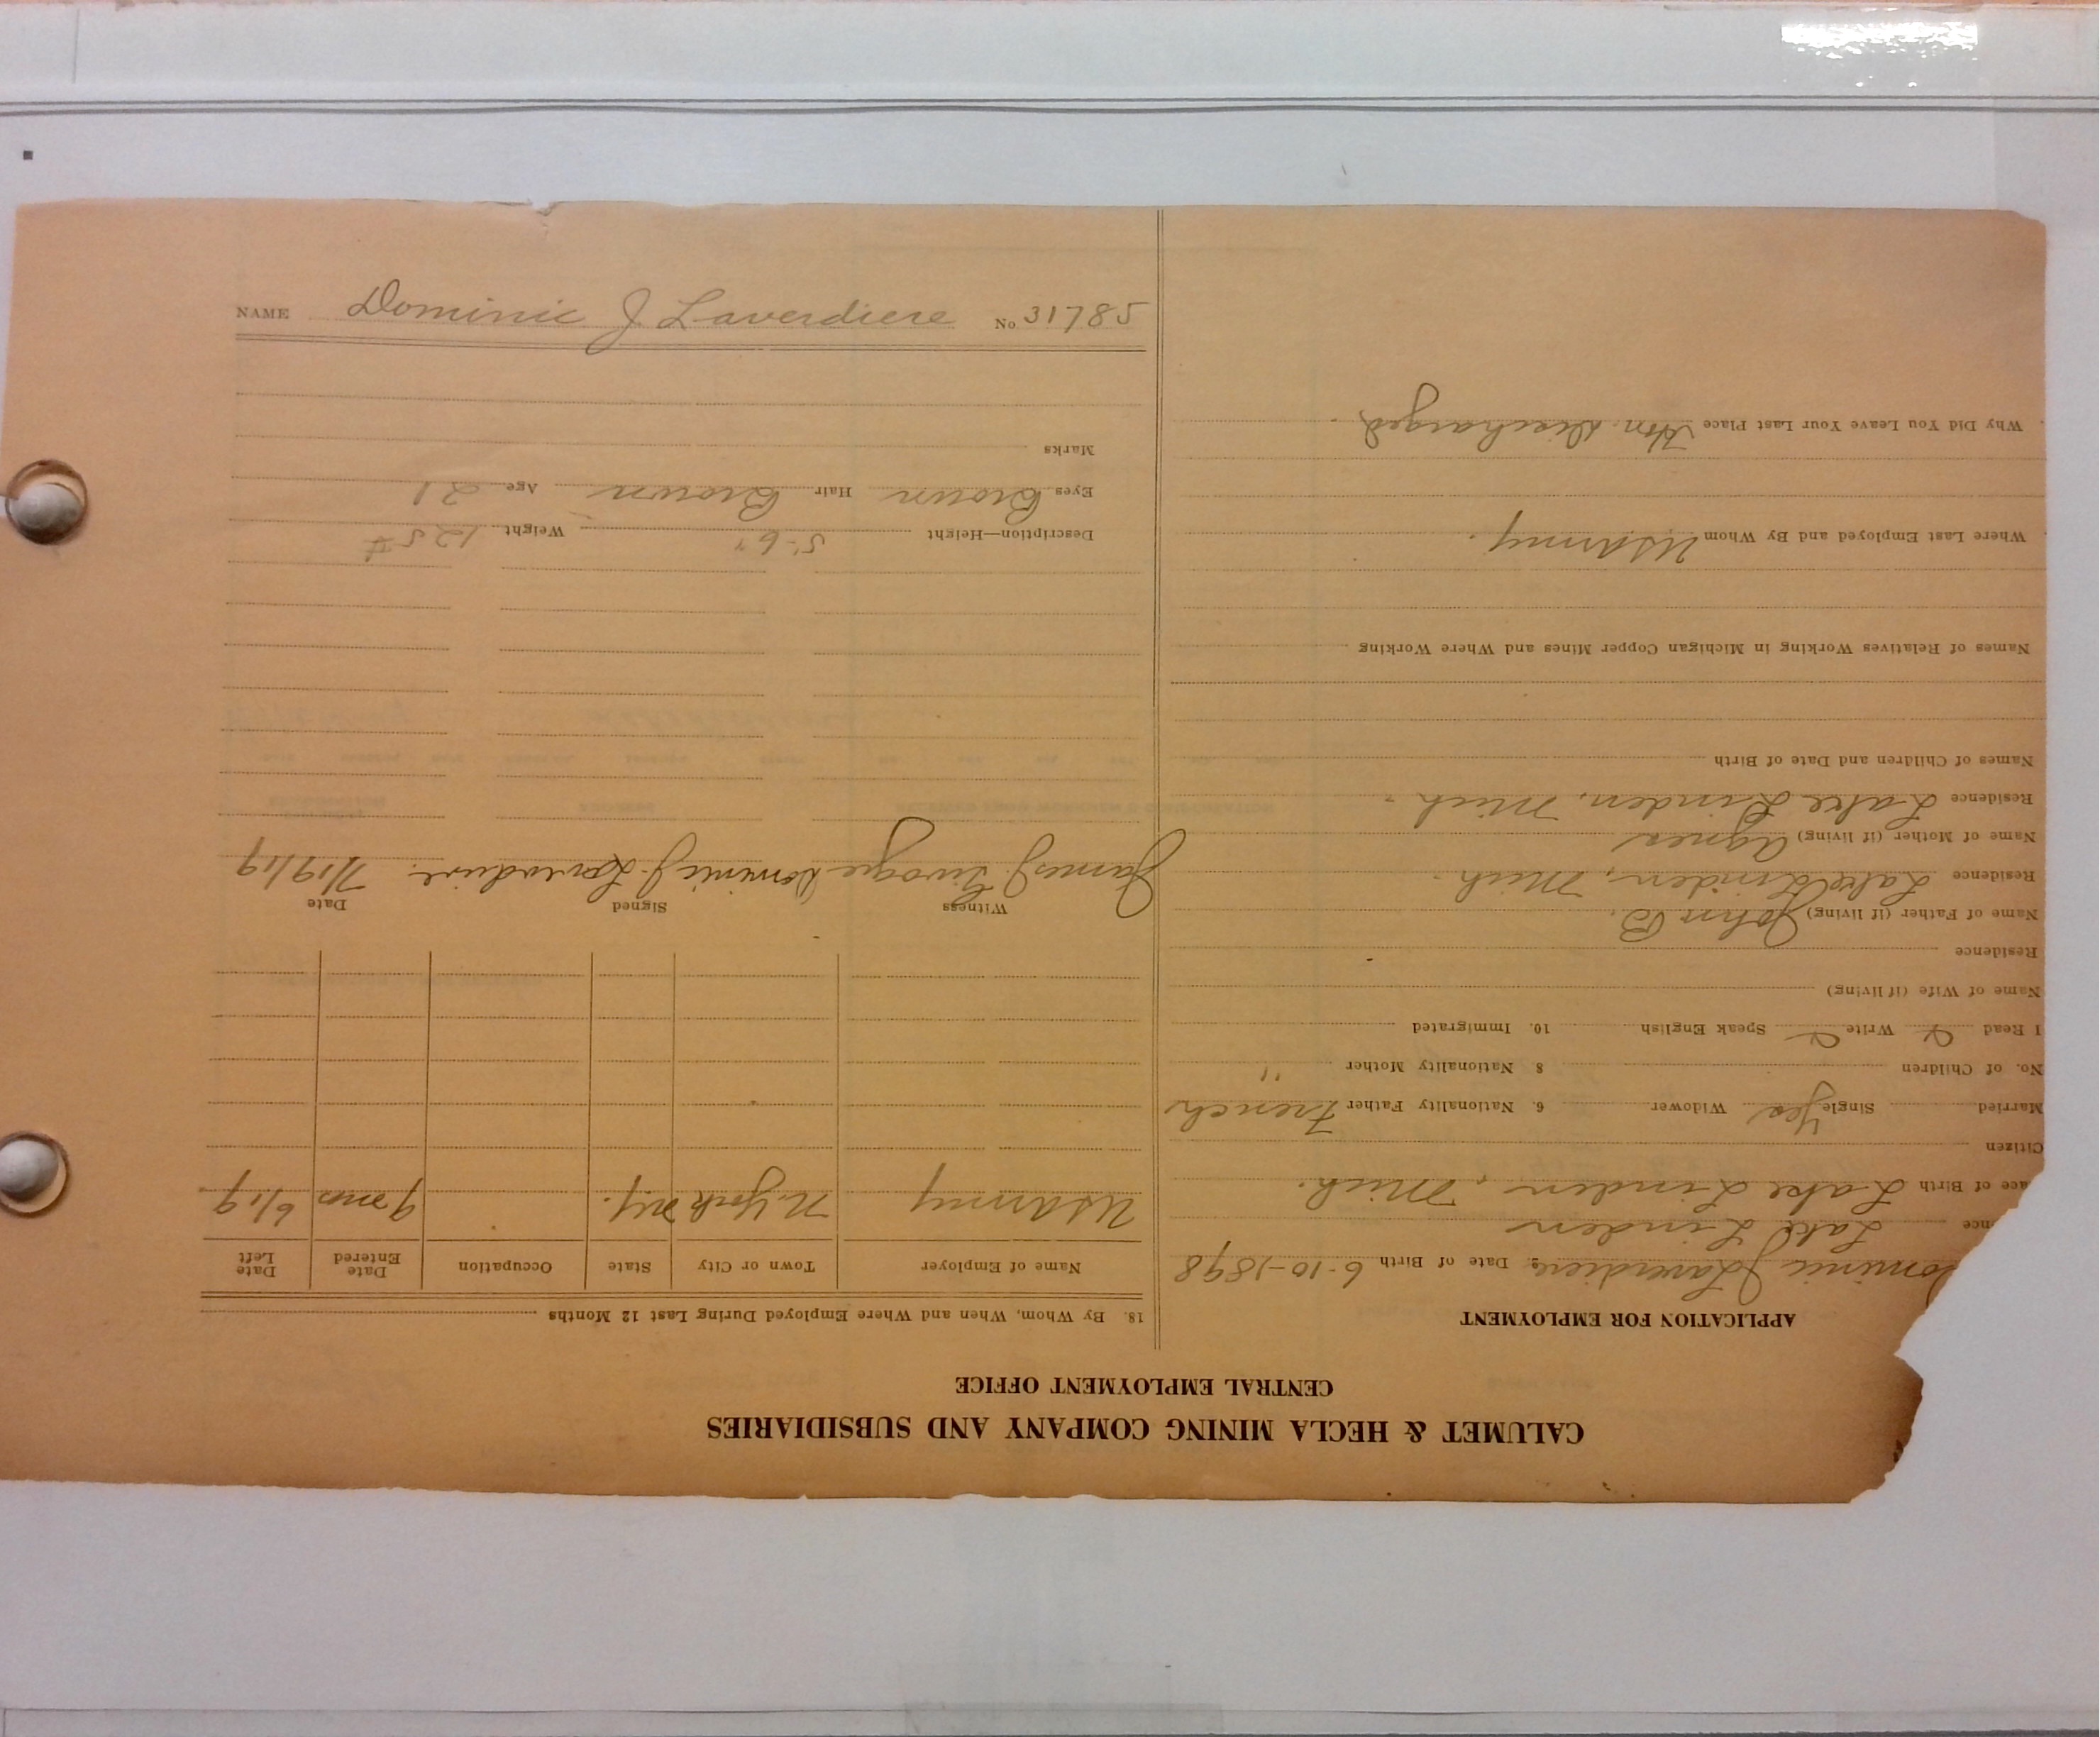 CALUMET & HECLA MINING COMPANY AND SUBSIDIARIES
CENTRAL EMPLOYMENT OFFICE
APPLICATION FOR EMPLOYMENT
ominic J Laverdiere 2. Date of Birth 6-10-1898
nce Lake Linden
ace of Birth Lake Linden, Mich.
Citizen
Married Single Yes Widower 6. Nationality Father French
No. of Children 8 Nationality Mother "
I Read Write Speak English 10. Immigrated
Name of Wife (if living)
Residence
Name of Father (if living) John B.
Residence Lake Linden, Mich.
Name of Mother (if living) Agnes
Residence Lake Linden, Mich.
Names of Children and Date of Birth
Names of Relatives Working in Michigan Copper Mines and Where Working
Where Last Employed and By Whom US Army.
Why Did You Leave Your Last Place Hon. Discharged.
18. By Whom, When and Where Employed During Last 12 Months
Name of Employer Town or City State Occupation Date Entered Date Left
US Army N. York N.Y. 9 mos 6/19
Witness Signed Date
James J. Dominic J. Laverdiere. 7/19/19
Description—Height 5'-6" Weight 125 #
Eyes Brown Hair Brown Age 21
Marks
NAME Dominic J Laverdiere No 31785